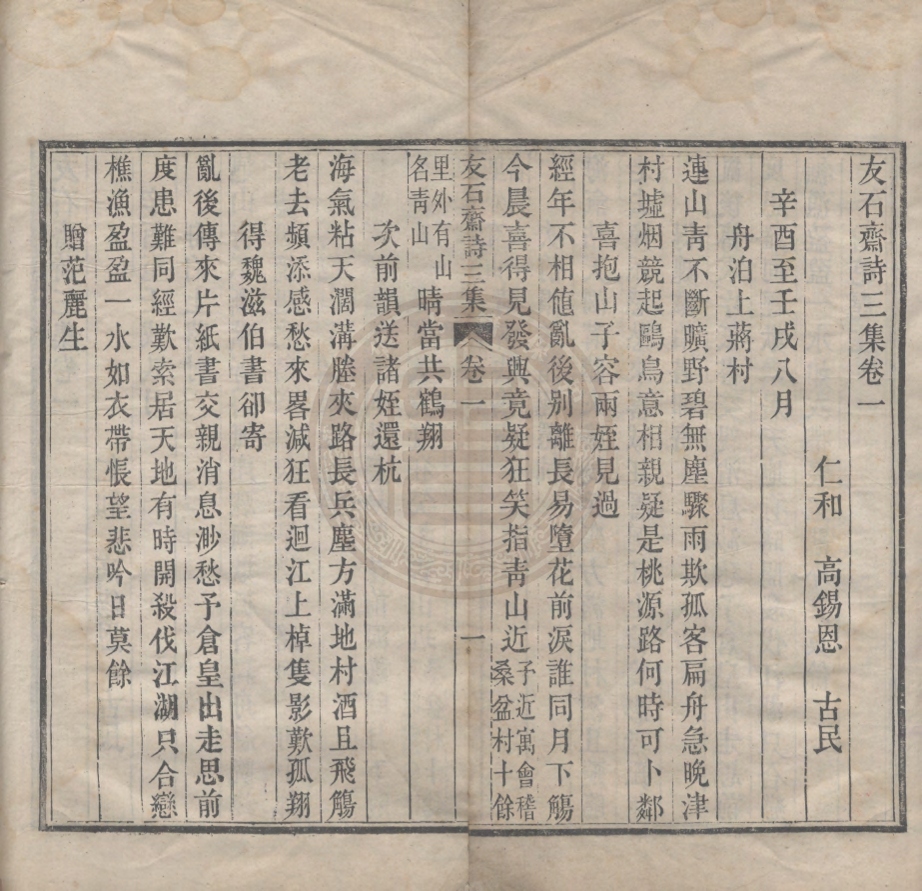 友石齋詩三集卷一
仁和 高錫恩 古民
辛酉至壬戌八月
舟泊上蔣村
連山青不斷曠野碧無塵驟雨欺孤客扁舟急晚津
村墟烟競起鷗鳥意相親疑是桃源路何時可卜鄰
喜抱山子容兩姪見過
經年不相値亂後别離長易墮花前淚誰同月下觴
今晨喜得見發興竟疑狂笑指青山近子近寓會稽桑盆村十餘
友石齋詩三集 卷一 一
里外有山名青山晴當共鶴翔
次前韻送諸姪還杭
海氣粘天濶溝塍夾路長兵塵方滿地村酒且飛觴
老去頻添感愁來畧減狂看迴江上棹隻影歎孤翔
得魏滋伯書卻寄
亂後傳來片紙書交親消息渺愁予倉皇出走思前
度患難同經歎索居天地有時開殺伐江湖只合戀
樵漁盈盈一水如衣帶悵望悲吟日莫餘
贈范麗生